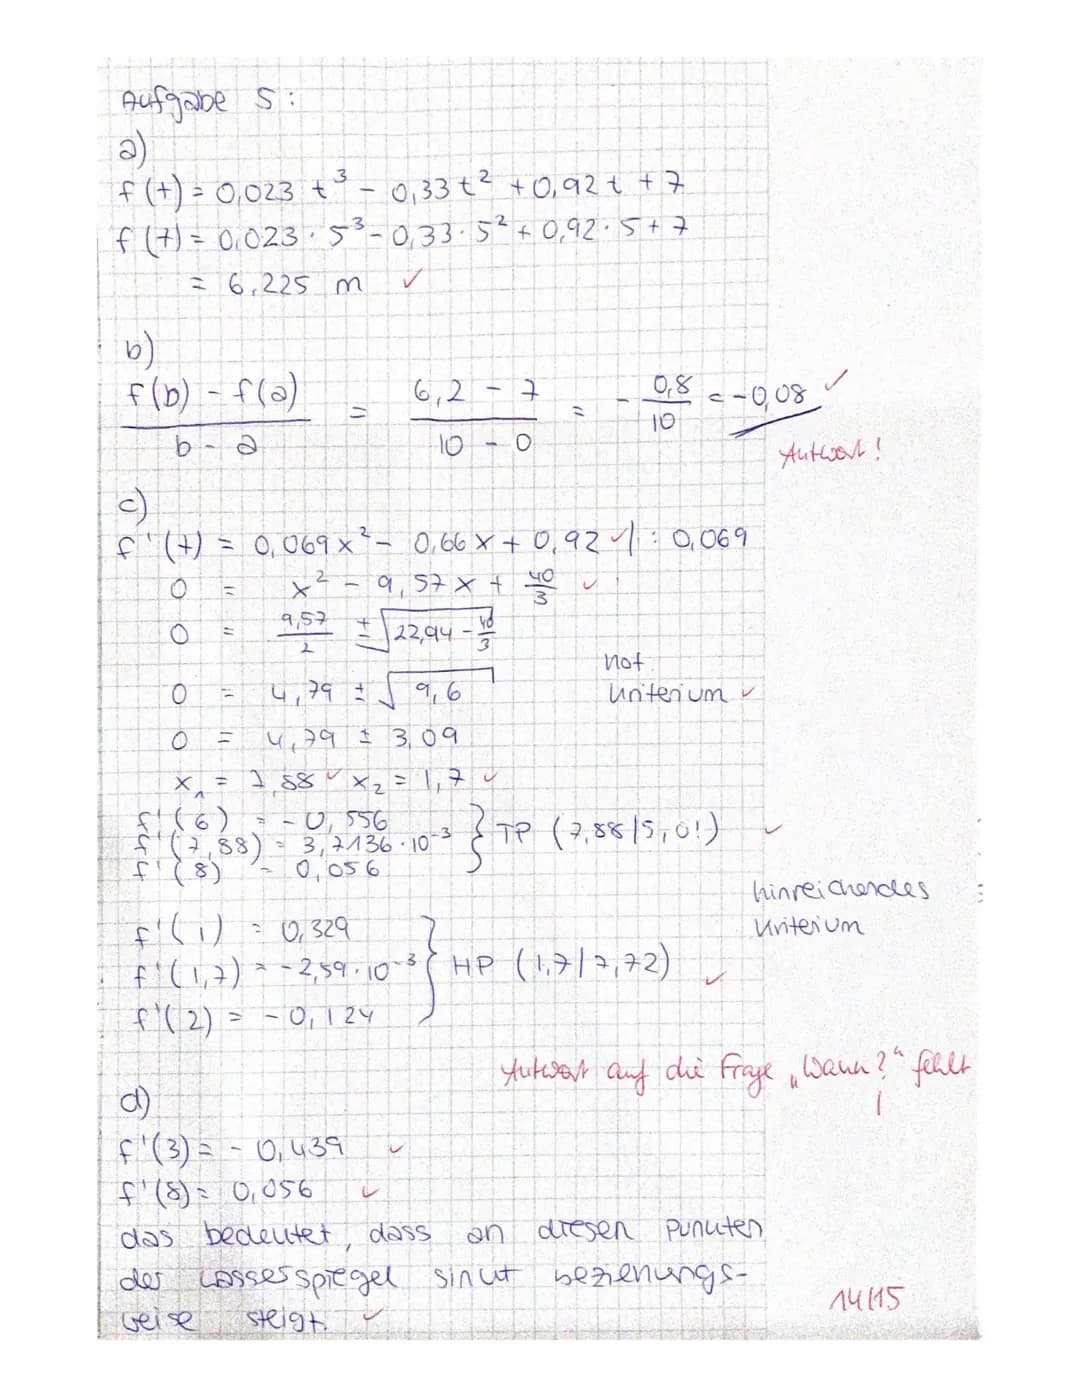 Aufgabe 5:
a)
f(t) = 0,023 t³ - 0,33 t² + 0,92 t + 7
f(t) = 0,023 · 5³ - 0,33 · 5² + 0,92 · 5 + 7
= 6,225 m ✓
b)
f(b) - f(a) / b - a = 6,2 - 7 / 10 - 0 = - 0,8 / 10 = -0,08 ✓
Antwort!
c)
f'(t) = 0,069 x² - 0,66 x + 0,92 ✓ | : 0,069
0 = x² - 9,57 x + 40/3 ✓
0 = 9,57/2 ± √22,94 - 40/3
0 = 4,79 ± √9,6
not.
Kriterium ✓
0 = 4,79 ± 3,09
x₁ = 7,88 ✓ x₂ = 1,7 ✓
f'(6) = -0,556
f'(7,88) = 3,7136 · 10⁻³ } TP (7,88 | 5,01) ✓
f'(8) = 0,056
hinreichendes
Kriterium
f'(1) = 0,329
f'(1,7) = -2,59 · 10⁻³ } HP (1,7 | 7,72) ✓
f'(2) = -0,124
Antwort auf die Frage „Wann?“ fehlt
!
d)
f'(3) = -0,439 ✓
f'(8) = 0,056 ✓
das bedeutet, dass an diesen Punkten
der Wasserspiegel sinkt beziehungs-
weise steigt. ✓
14/15